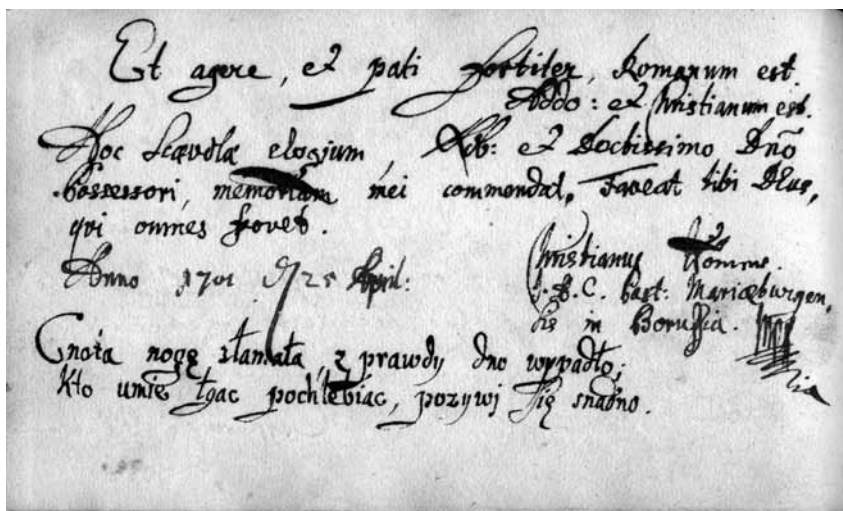 Et agere, et pati fortiter, Romanum est.
Addo: et Christianum est.
Hoc Scævolæ elogium, Nob: et Doctissimo Dño
Possessori, memoriam mei commendat, Faveat tibi Deus,
qui omnes fovet.
Anno 1701 25 April:
Christianus
P. B. C. Past: Mariæburgen,
sis in Borussia.
Cnota nogę złamała, z prawdy dno wypadło;
Kto umie łgac pochlebiac, pozywi się snadno.